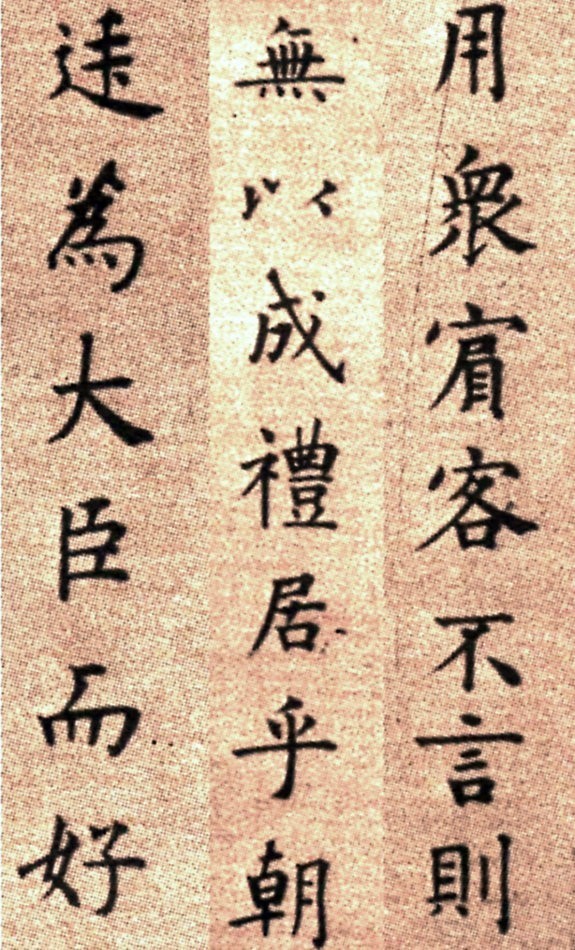 用眾賓客不言則
無以成禮居乎朝
廷為大臣而好